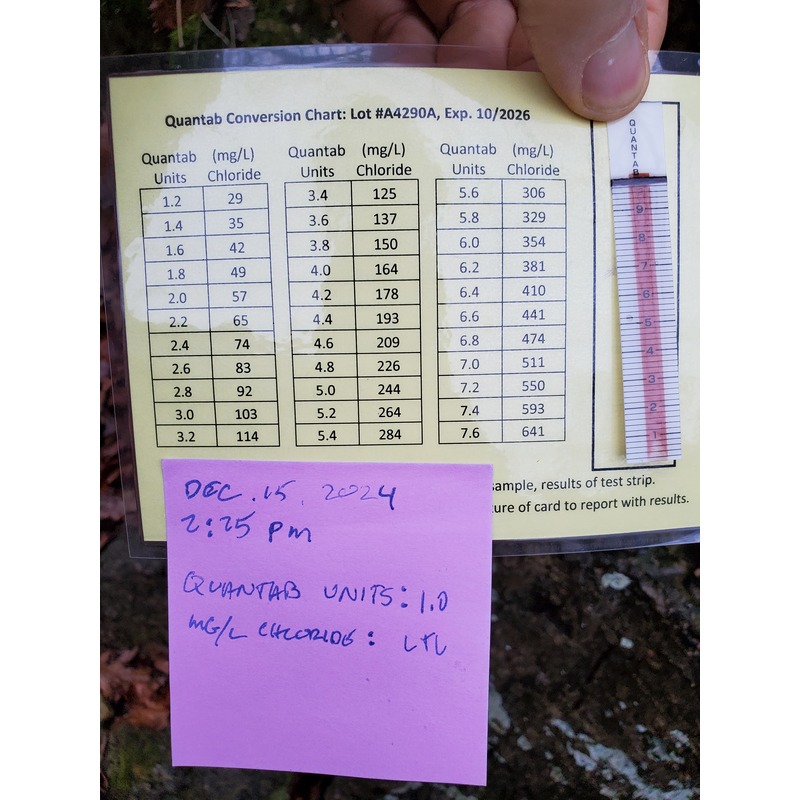 Quantab Conversion Chart: Lot #A4290A, Exp. 10/2026
Quantab Units (mg/L) Chloride
1.2 29
1.4 35
1.6 42
1.8 49
2.0 57
2.2 65
2.4 74
2.6 83
2.8 92
3.0 103
3.2 114
Quantab Units (mg/L) Chloride
3.4 125
3.6 137
3.8 150
4.0 164
4.2 178
4.4 193
4.6 209
4.8 226
5.0 244
5.2 264
5.4 284
Quantab Units (mg/L) Chloride
5.6 306
5.8 329
6.0 354
6.2 381
6.4 410
6.6 441
6.8 474
7.0 511
7.2 550
7.4 593
7.6 641
QUANTAB
9
8
7
6
5
4
3
2
1
sample, results of test strip.
ure of card to report with results.
DEC. 15, 2024
2:25 pm
QUANTAB UNITS: 1.0
MG/L CHLORIDE: LTL